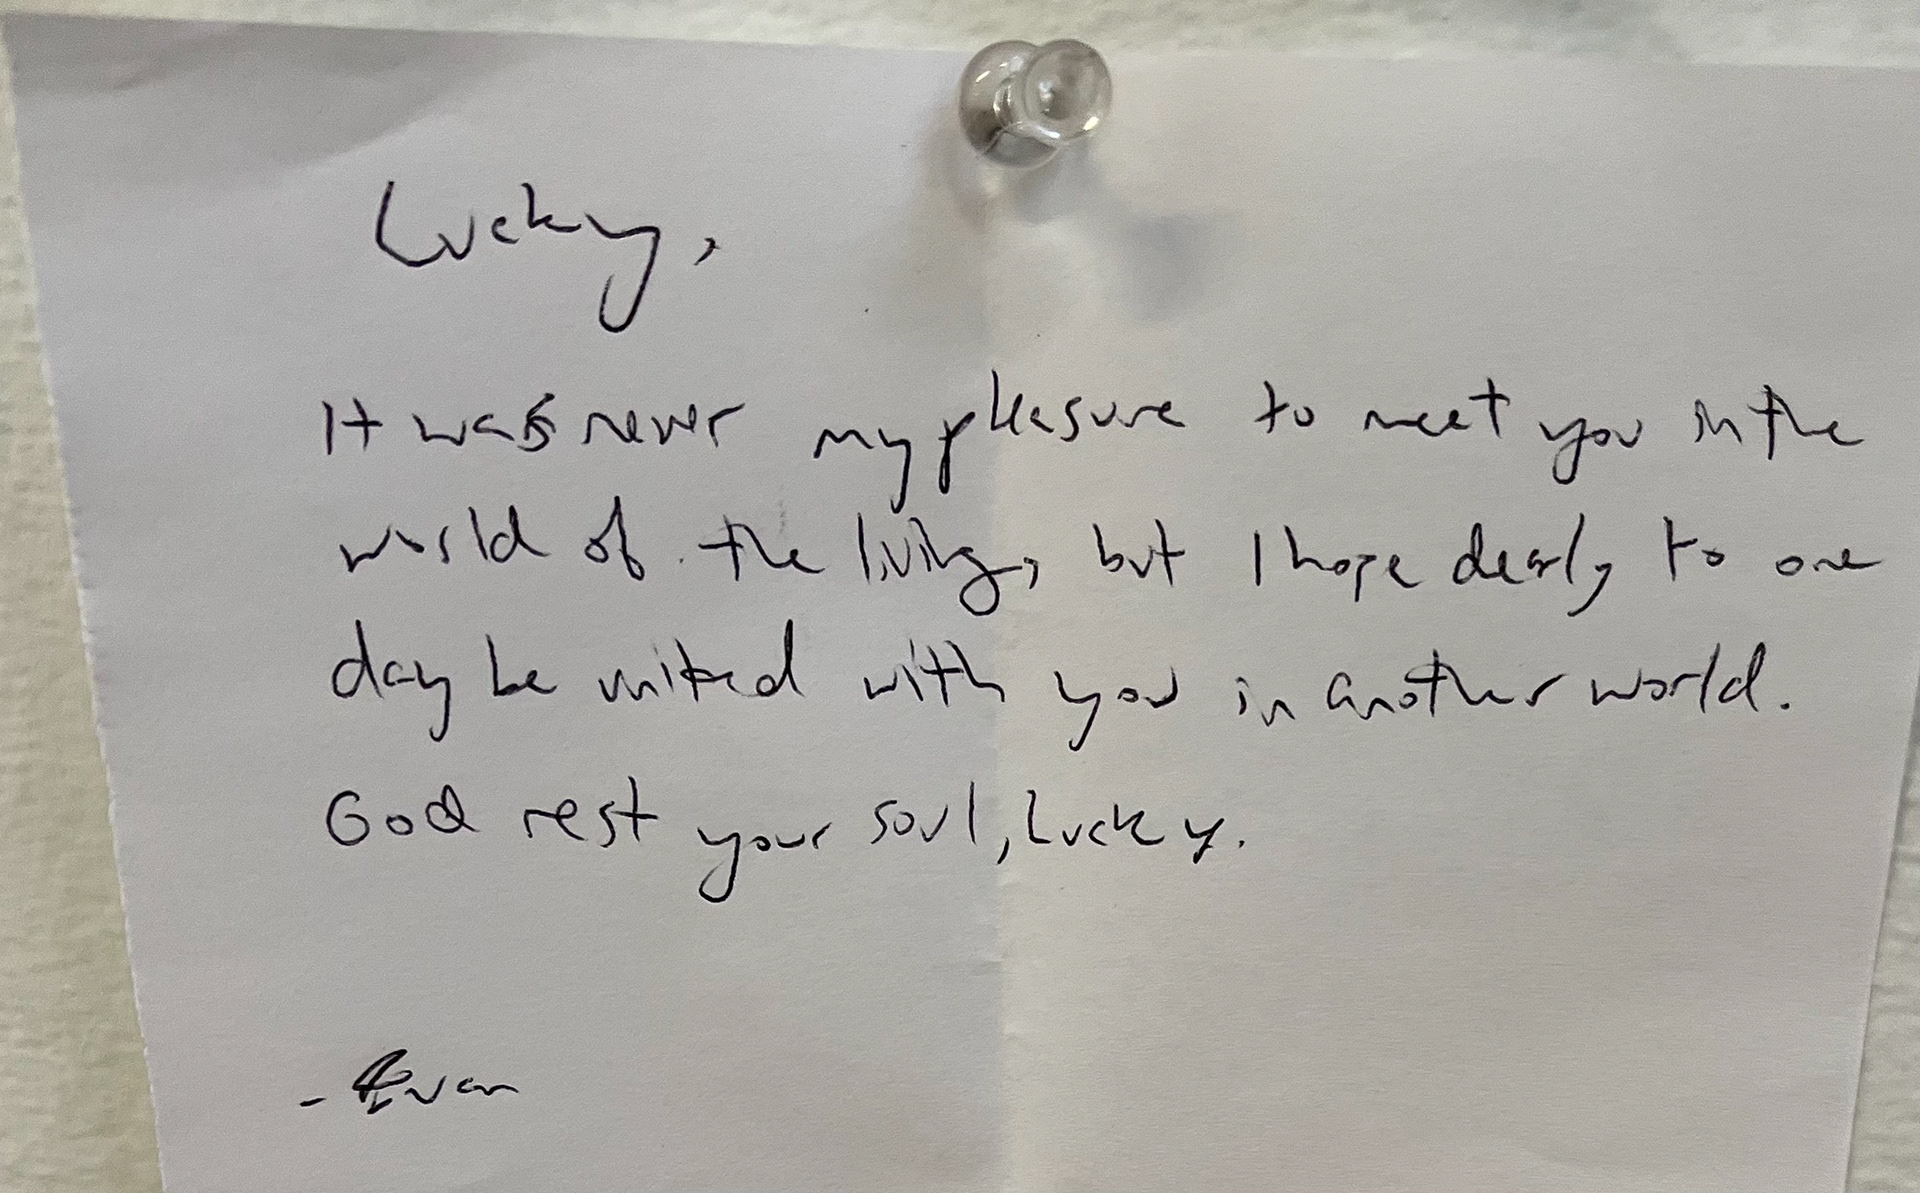 Lucky,
It was never my pleasure to meet you in the
world of the living, but I hope dearly to one
day be united with you in another world.
God rest your soul, Lucky.
- Evan